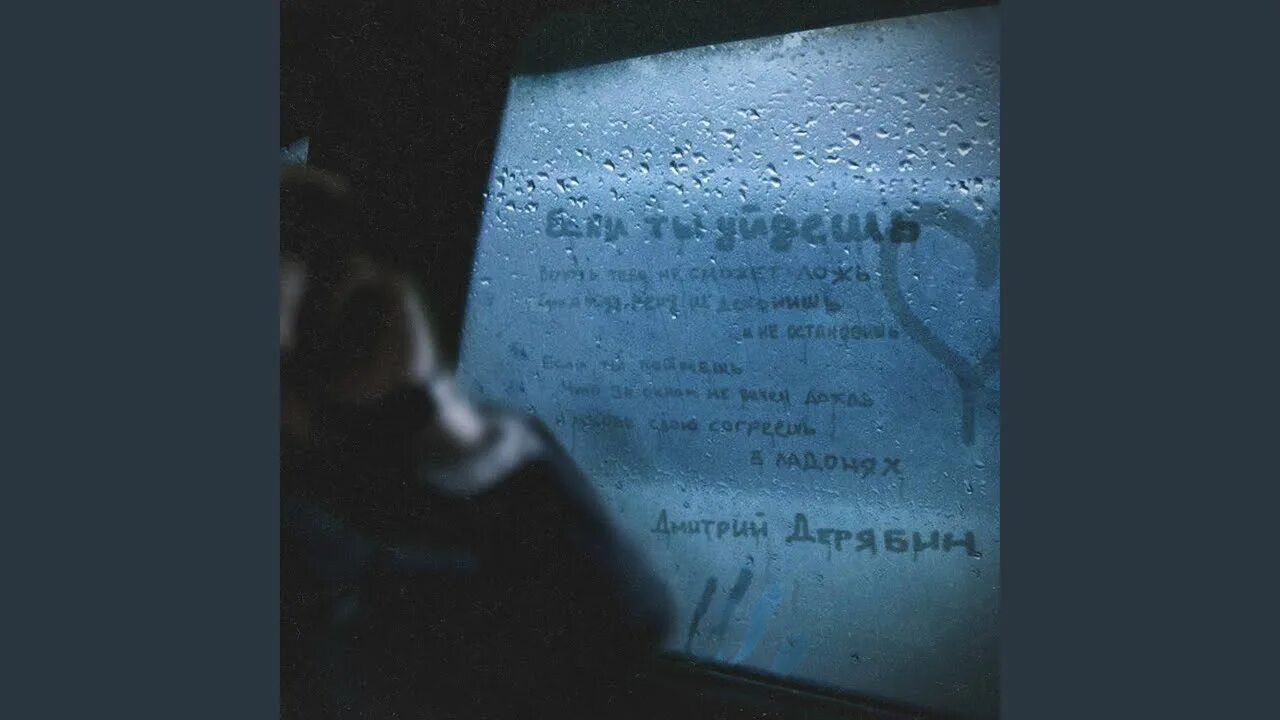 Если ты уйдешь
тебя не сможет ложь
не догонишь
и не остановишь
Если ты поймешь
Что за окном не вечен дождь
И любовь свою согреешь
В ладонях
Дмитрий Дерябин